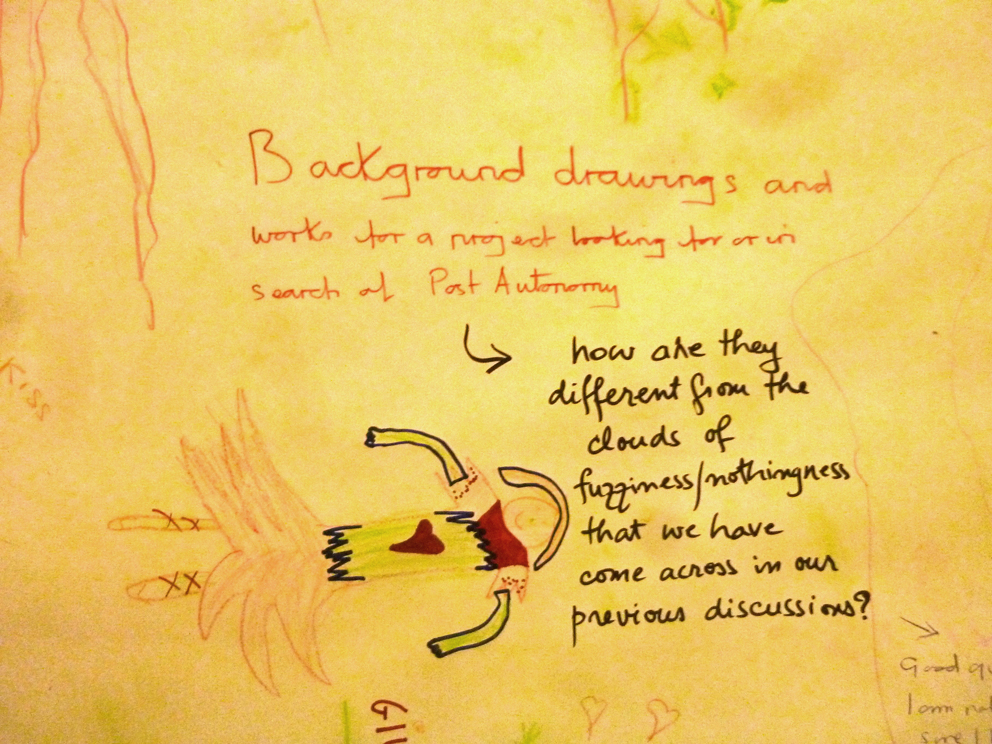 Background drawings and
works for a project looking for or in
search of Post Autonomy
how are they
different from the
clouds of
fuzziness/nothingness
that we have
come across in our
previous discussions?
Kiss
Good
I am